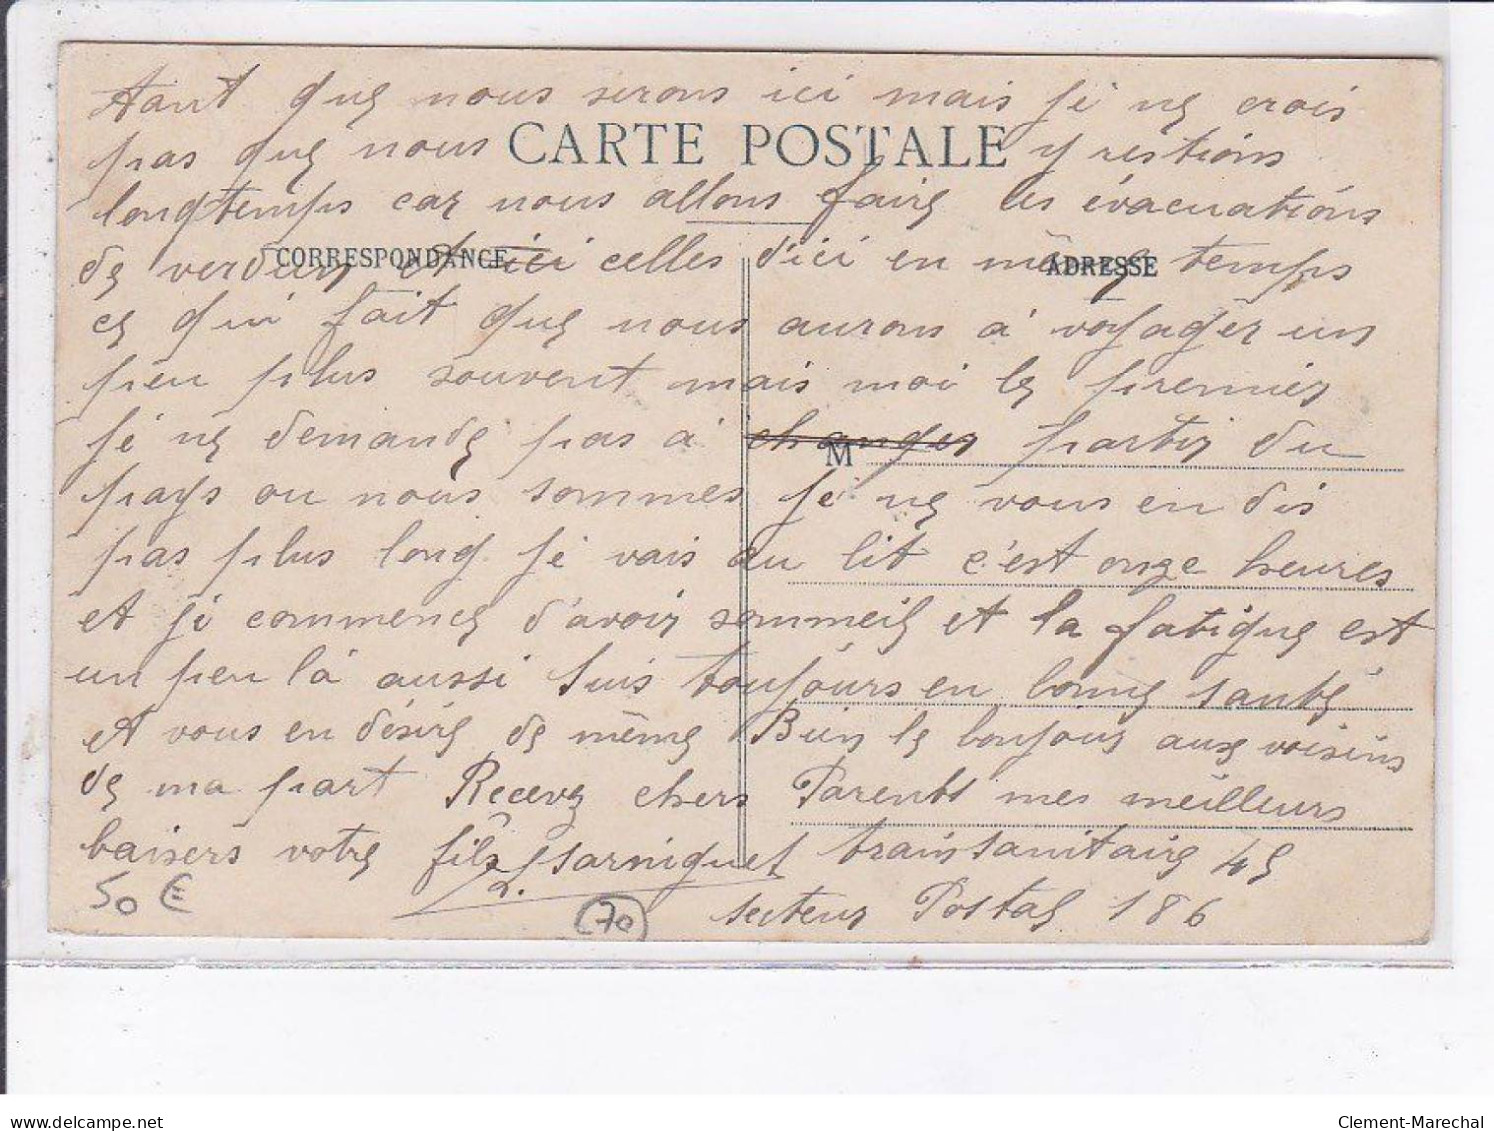 tant que nous serons ici mais je ne crois
pas que nous CARTE POSTALE y restions
longtemps car nous allons faire les évacuations
CORRESPONDANCE
ADRESSE
de verdun et ici celles d'ici en même temps
ce qui fait que nous aurons à voyager un
peu plus souvent mais moi le premier
je ne demande pas à changer partir du
M
pays ou nous sommes je ne vous en dis
pas plus long je vais au lit c'est onze heures
et je commence d'avoir sommeil et la fatigue est
un peu là aussi suis toujours en bonne santé
et vous en désire de même Bien le bonjour aux voisins
de ma part Recevez chers Parents mes meilleurs
baisers votre fils train sanitaire 45
secteur Postal 186
50 €
70
delcampe.net
Clement-Marechal